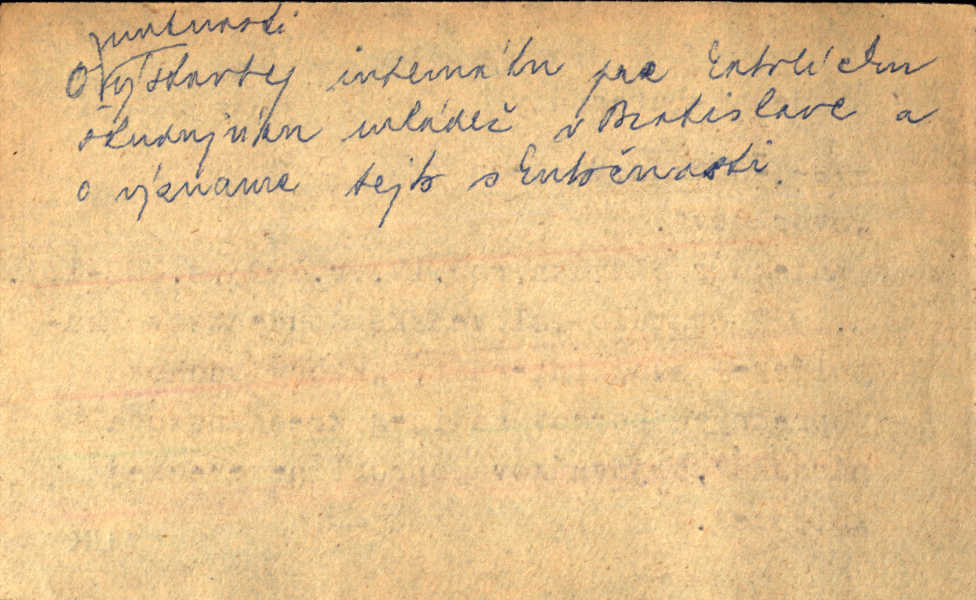 jnutnosti
O výstavbej internátu pre katolícku
študujúcu mládež v Bratislave a
o význame tejto skutočnosti.